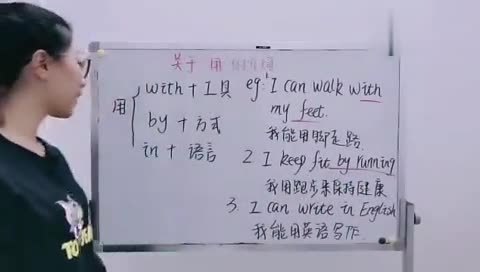 关于 用
用
with + 工具
by + 方式
in + 语言
eg: 1 I can walk with
my feet.
我能用脚走路.
2. I keep fit by running
我用跑步来保持健康
3. I can write in English
我能用英语写作.